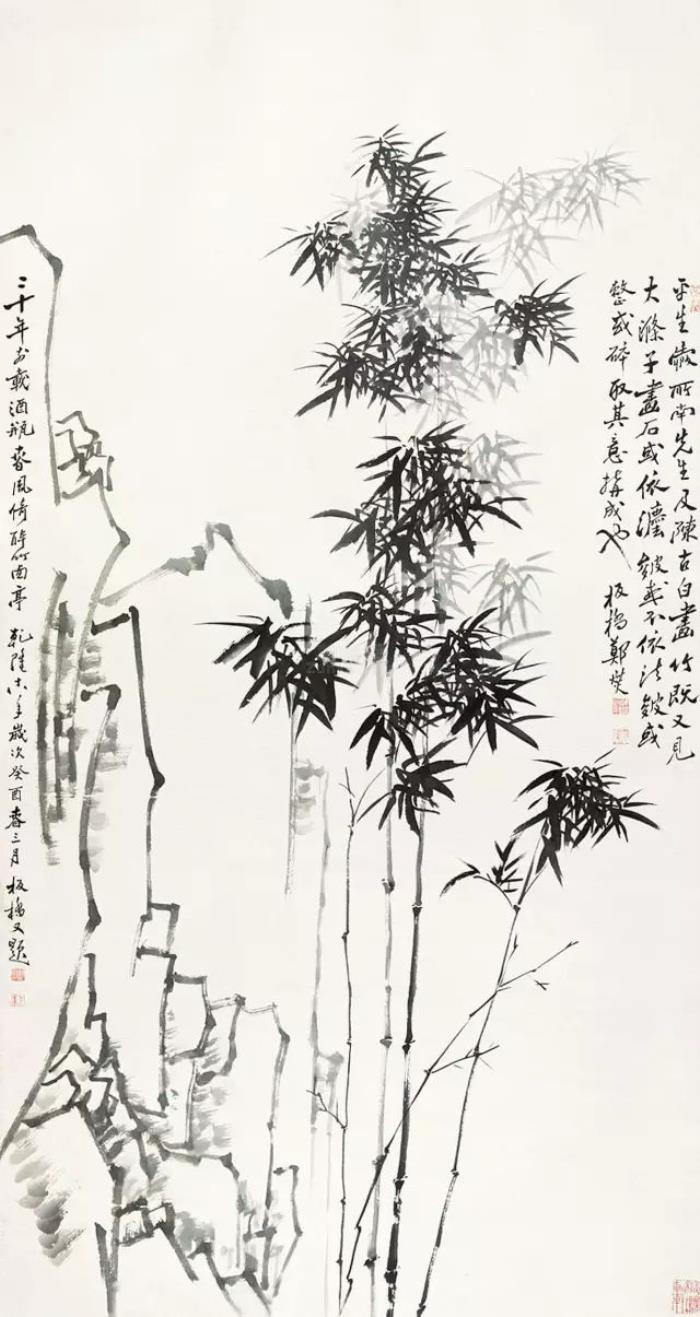 平生愛所南先生及陳古白畫竹既又見
大滌子畫石或依灋皴或不依法皴或
整或碎取其意搆成也 板橋鄭燮
二十年前載酒瓶春風倚醉竹西亭 乾隆十八年歲次癸酉春三月板橋又題